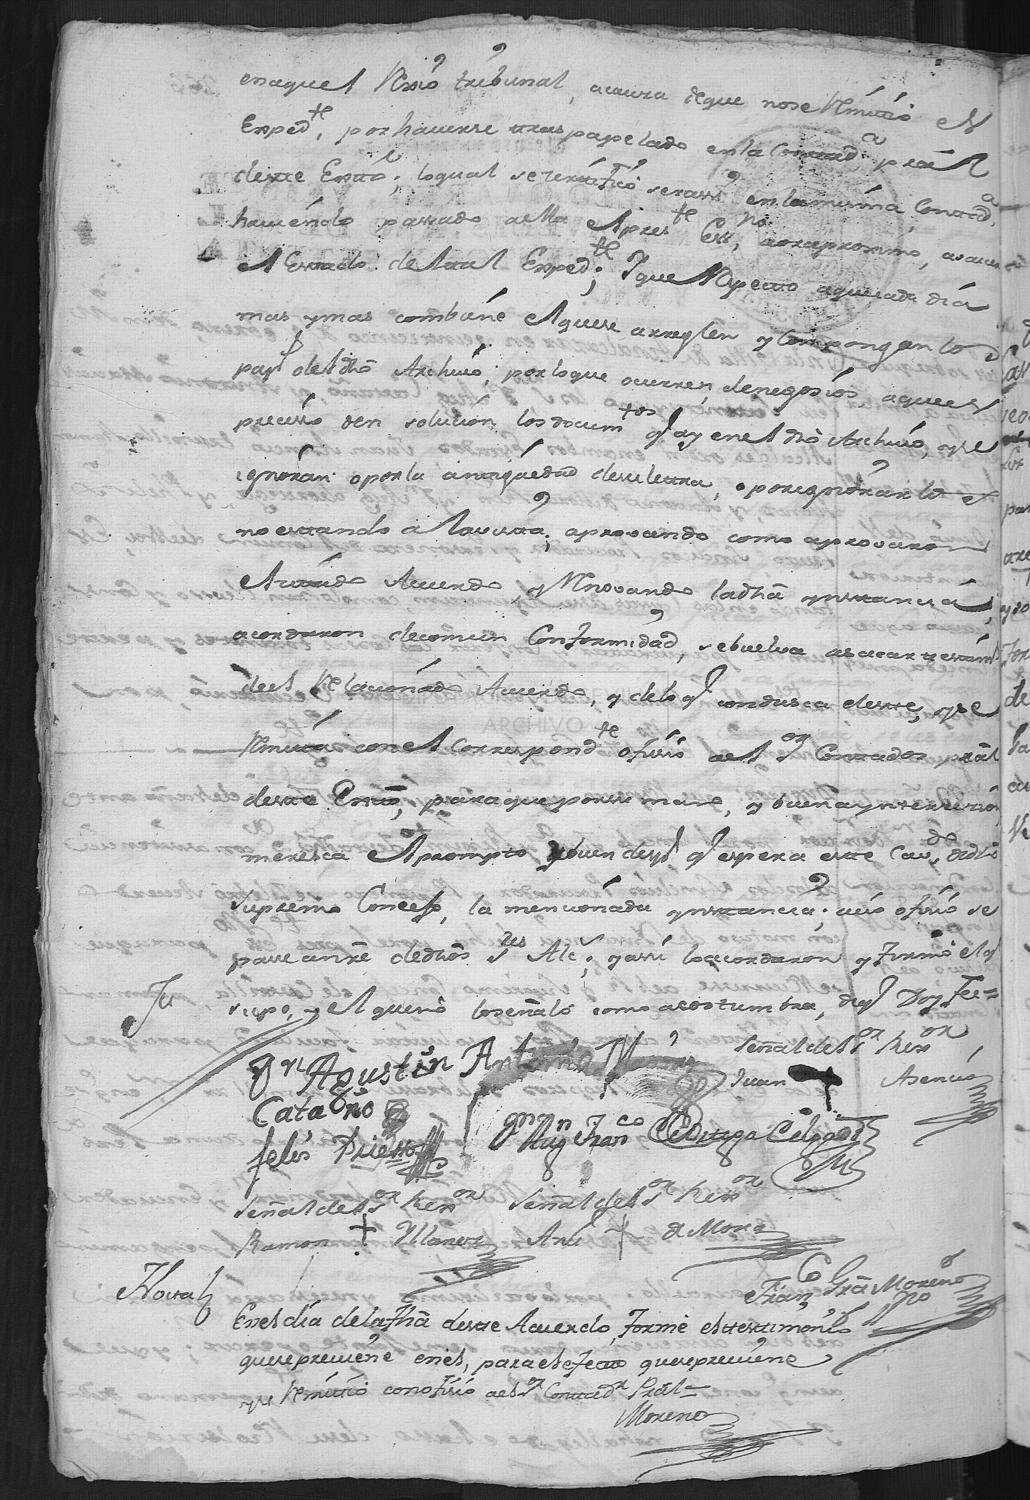 en aquel Rexio tribunal, acausa deque nose Remitió el
Exped.te, por haverse traspapelado en la Contad.a pral
deste Exto; loqual se reratificó en la misma Contad.a,
haviendo passado aella el pres.te Ess.no
el Estado del tal Exped.te; Yque Respecto aque cada dia
mas ymas combiene elquese arreglen y Compongan los
pap.s del dho Archivo; porloque ocurren denegosios aquees
presisso den solucion los docum.tos q.e ay en el dho Archivo, yse
ignoran o porla antiguedad desu letra, o por ignorarlos
no estando a la vista; aprovando como aprovaron
el citado Acuerdo, y Renovando ladha ynstancia,
acordaron decomun Conformidad, sebuelva asacar testim.o
del Relacionado Acuerdo, y delo q.e condusca deeste, yse
Remita con el Correspond.te ofisio ael S.or Contador pral
deste Exto, para que por su mano, y buena yntersesion
meresca el prompto ybuen desp.o q.e espera este Cav.do dedho
Supremo Consejo, la mencionada ynstancia; cuio ofisio se
passe anre dedhos S.res Alc.s; yassi loacordaron y firmó el q.e
supo, y el queno loseñaló como acostumbra, deq.e Doy Fee=
Dn Agustin Antonio M
señal del S.or Rex.or
Juan + Asencio
Catagño
Felis Prieto
Dn Juan Fran.co Ortega Delgado
señal del S.or Rex.or señal del S.or Rex.or
Ramon + Yllanes Ant.o + de Mora
Fran.co Gra Moreno
Nota
En el dia de la Fha deeste Acuerdo, Formé el testimonio
quese previene en el, para el efecto quese previene
yse Remitió con ofisio ael S.r Contad.r Pral=
Moreno
ARCHIVO